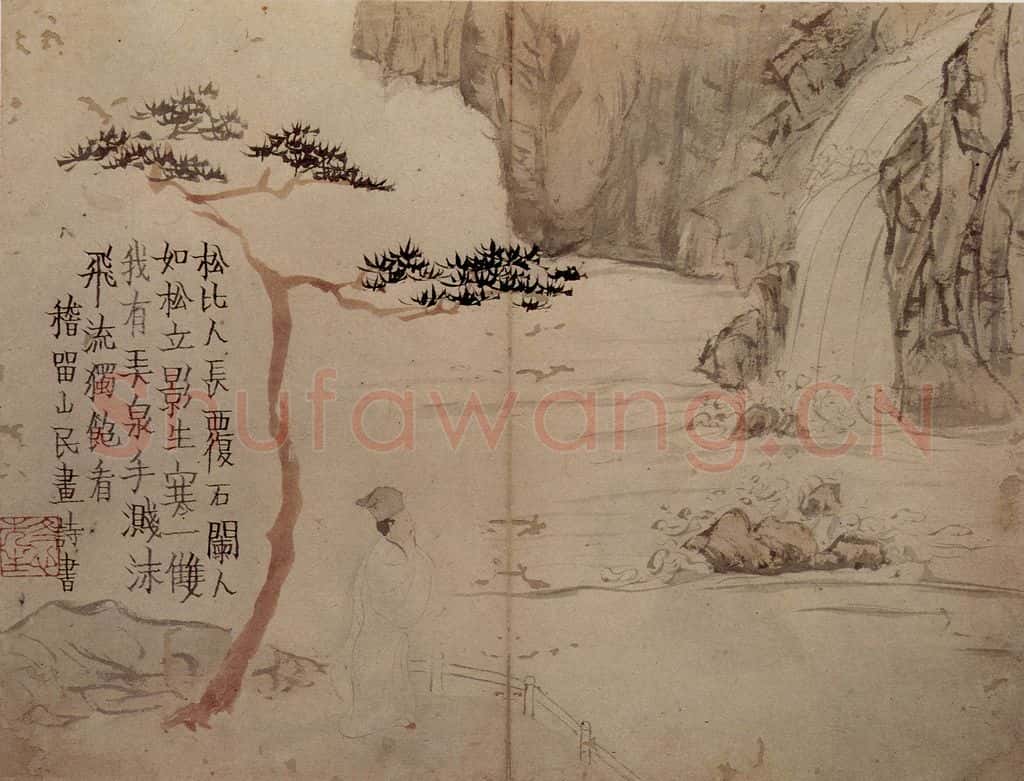 松比人長覆石闌人
如松立影生寒一雙
我有美泉手濺沫
飛流獨飽看
稽留山民畫詩書
Shufawang.CN